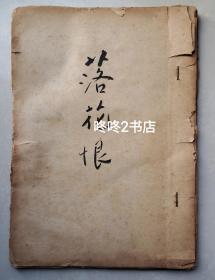 落花恨
咚咚2书店